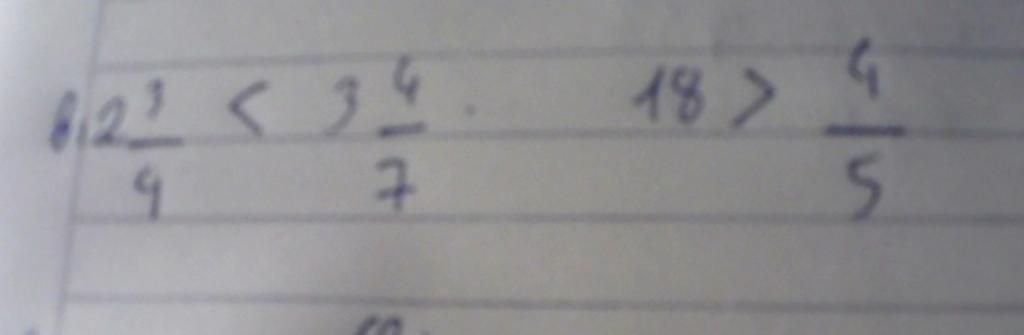 б. 2 3/4 < 3 4/7. 18 > 4/5